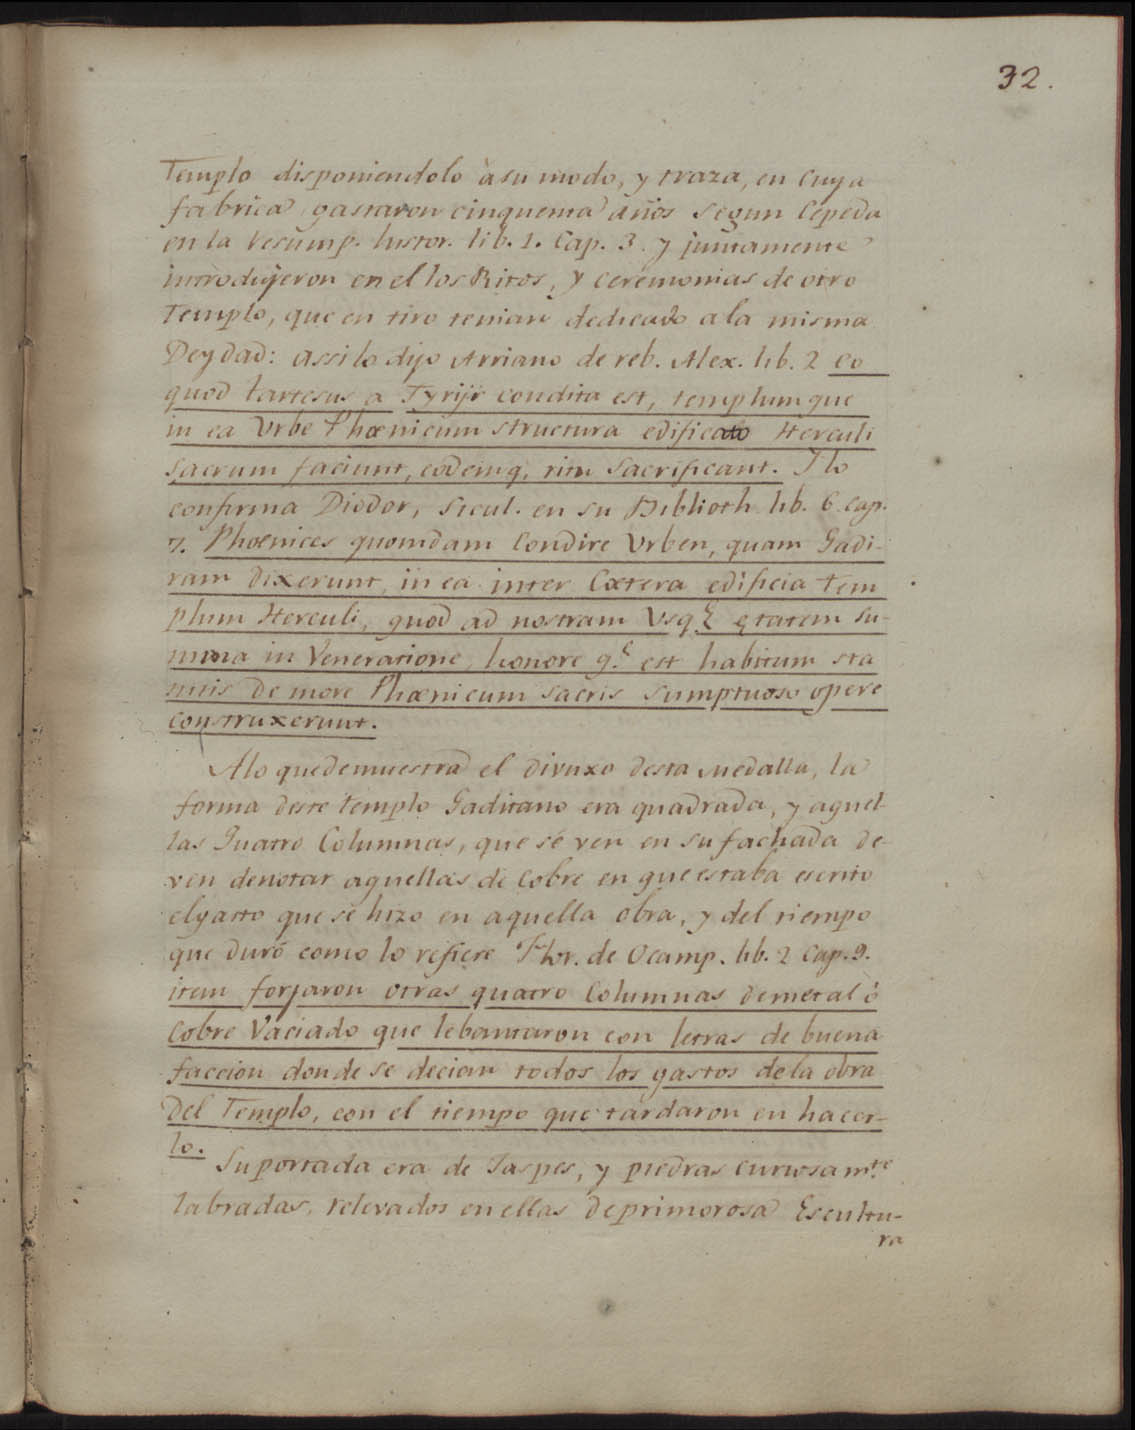 32.
Templo disponiendolo àsu modo, y traza, en cuya
fabrica gastaron cinquenta años segun Cepeda
en la Resump. histor. lib. 1. Cap. 3. y juntamente
introdujeron en el los Ritos, y ceremonias de otro
Templo, que en tiro tenian dedicado a la misma
Deydad: assi lo dijo Arriano de reb. Alex. lib. 2 eo
quod tartesus a Tyrijs condita est, templum que
in ea Vrbe Phœnicum structura edificato Herculi
sacrum faciunt, eodemq. ritu sacrificant. Y lo
confirma Diodor, sicul. en su Biblioth lib. 6 cap.
7. Phoenices quomdam Condire Vrben, quam Gadi-
ram dixerunt, in ea inter Cætera edificia tem
plum Herculi, quod ad nostram Vsqe ętatem su-
mma in Veneratione, honore qe est habitum sta
tutis de more Phœnicum sacris sumptuoso opere
construxerunt.
Alo quedemuestra el divuxo desta Medalla, la
forma deste templo Gaditano era quadrada, y aquel-
las Quatro Columnas, que sé ven en su fachada de-
ven denotar aquellas de cobre en que estaba escrito
elgasto que sé hizo en aquella obra, y del tiempo
que duró como lo refiere Flor. de Ocamp. lib. 2 Cap. 9.
item forjaron otras quatro Columnas demetal ò
Cobre Vaciado que lebantaron con letras de buena
faccion donde se decian todos los gastos dela obra
Del Templo, con el tiempo que tardaron en hacer-
lo. Suportada era de Jaspes, y piedras curiosamte
labradas, relevados en ellas deprimorosa Escultu-
ra